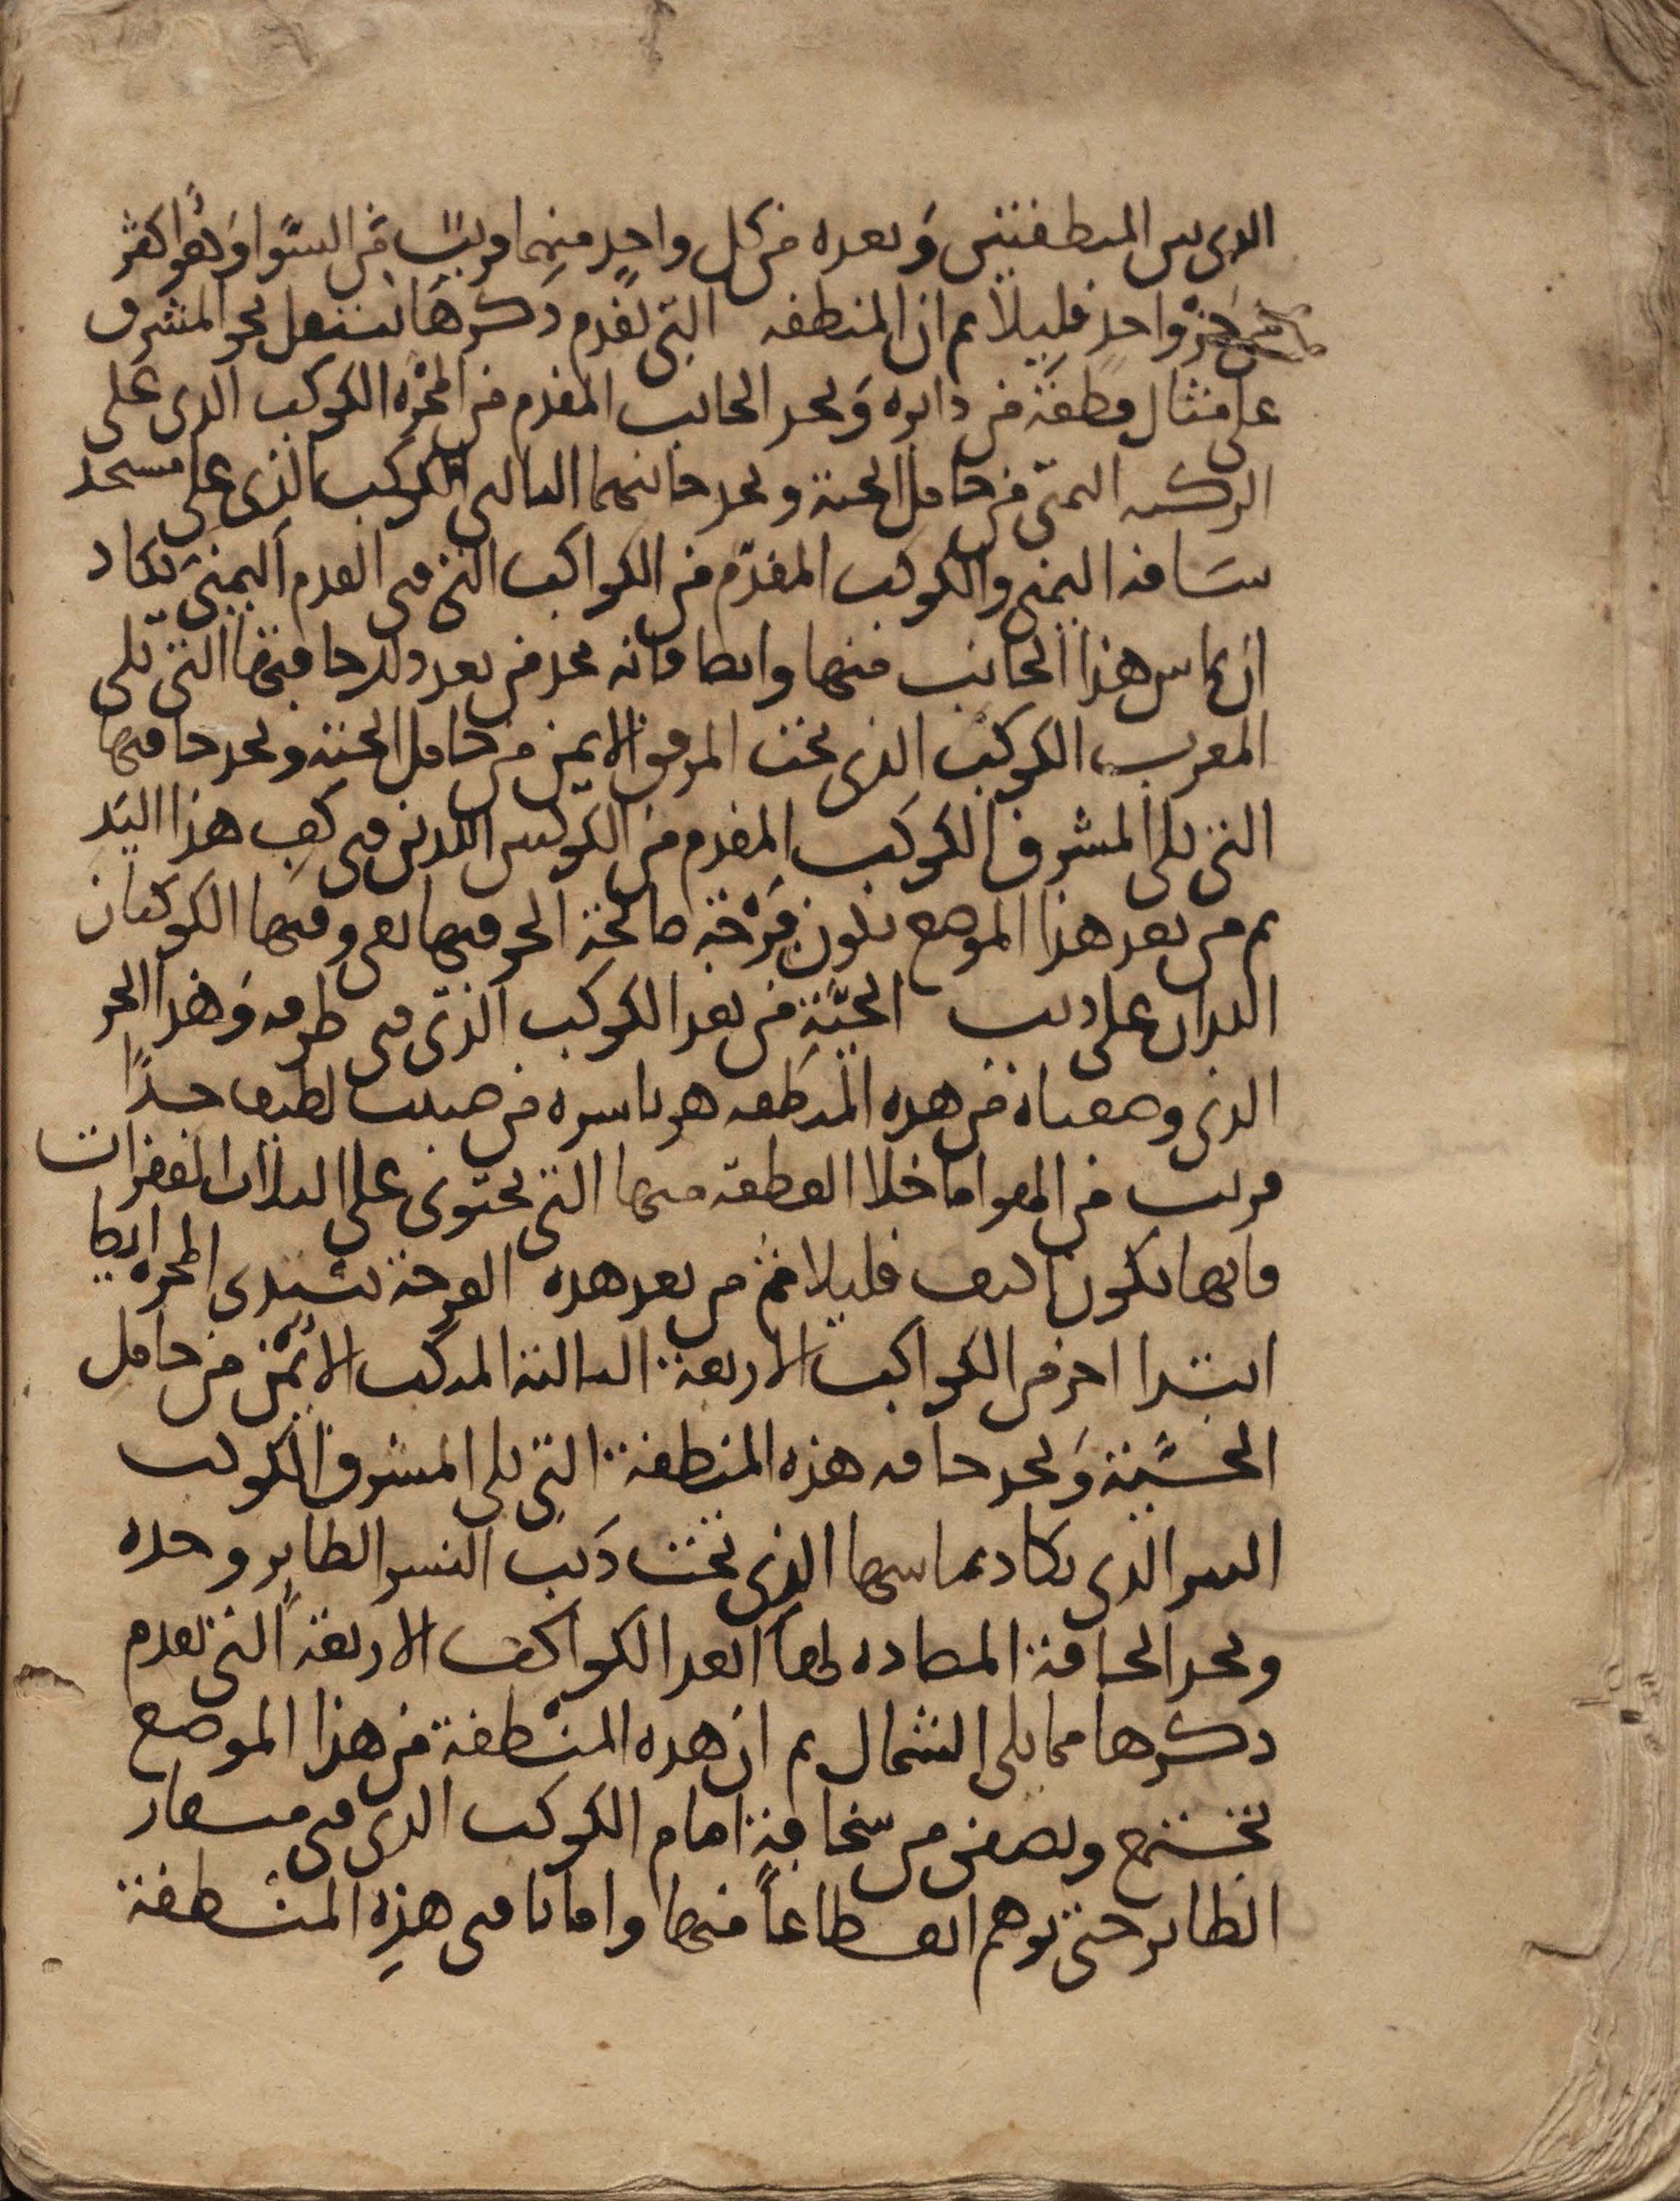 الذي بين المنطقتين وبعده من كل واحد منهما قريب من السوا وهو اكثر
من جزو واحد قليلا ثم ان المنطقه التي تقدم ذكرها تنتقل نحو المشرق
على مثال قطعة من دايره ونحد الجانب المقدم من المجره الكوكب الذي على
الركبه اليمنى من حامل الحية ونحد جانبها التالي الكوكب الذي على
ساقه اليمنى والكوكب المقدم من الكواكب التي في القدم اليمنى يكاد
ان يماس هذا الجانب منها وايضا فانه نحد من بعد ذلك حافتها التي تلي
المغرب الكوكب الذي تحت المرفق الايمن من حامل الحية ونحد حافتها
التي تلي المشرق الكوكب المقدم من الكوكبين اللذين في كف هذا اليد
ثم من بعد هذا الموضع تكون فرجة صالحة الجو فيها نقي وفيها الكوكبان
اللذان على ذنب الحية من بعد الكوكب الذي في طرفه وهذا الجز
الذي وصفناه من هذه المنطقه هو باسره من ضباب لطيف جدا
قريب من الهوا ما خلا القطعة منها التي تحتوي على الثلاث الفقرات
فانها تكون اكثف قليلا ثم من بعد هذه الفرجة تبتدي المجره ايضا
ابتدا اخر من الكواكب الاربعة التالية المنكب الايمن من حامل
الحية ونحد حافه هذه المنطقة التي تلي المشرق الكوكب
النير الذي يكاد يماسها الذي تحت ذنب النسر الطاير وحده
ونحد الحافة المضاده لها ابعد الكواكب الاربعة التي تقدم
ذكرها مما يلي الشمال ثم ان هذه المنطقة من هذا الموضع
تجتمع وتضيق من سخافة امام الكوكب الذي في منقار
الطاير حتى توهم انقطاعا منها واما نا في هذه المنطقة